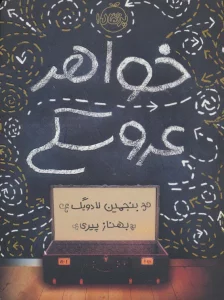 خواهر
عروسکی
بنجمین لادویگ
بهناز پیری